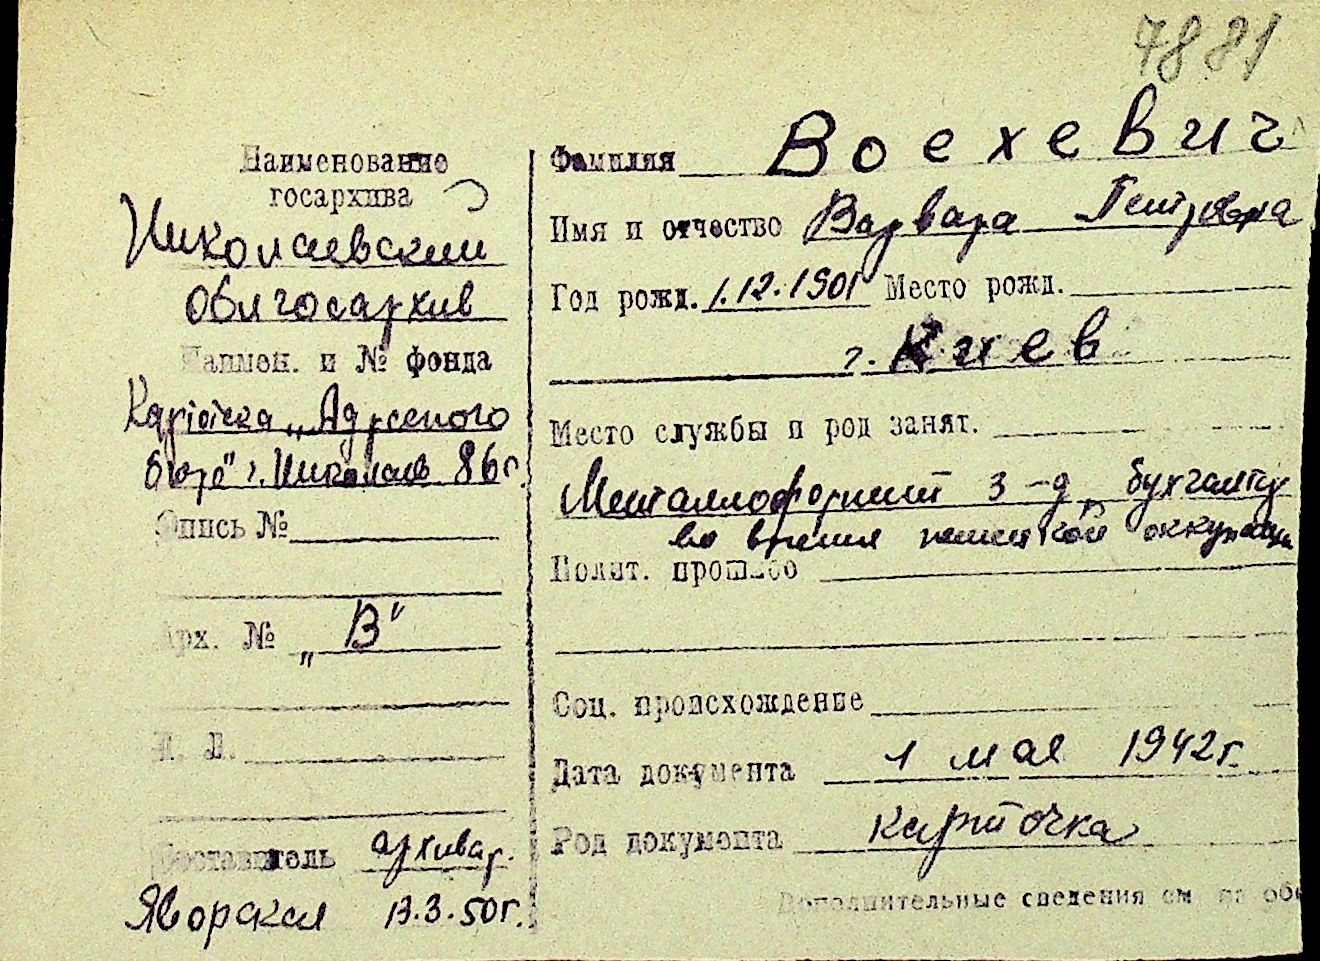 7881
Наименование
госархива
Николаевский
облгосархив
Наимен. и № фонда
Картотека „Адресного
бюро" г. Николаев 86г.
Опись №
Арх. № „В"
К. Л.
Составитель архивар.
Яворская 13.3.50г.
Фамилия Воехевич
Имя и отчество Варвара Петровна
Год рожд. 1.12.1901 Место рожд.
г. Киев
Место службы и род занят.
Металлоформит з-д, бухгалтер
во время немецкой оккупации
Полит. прошлое
Соц. происхождение
Дата документа 1 мая 1942г.
Род документа карточка
Дополнительные сведения см на об